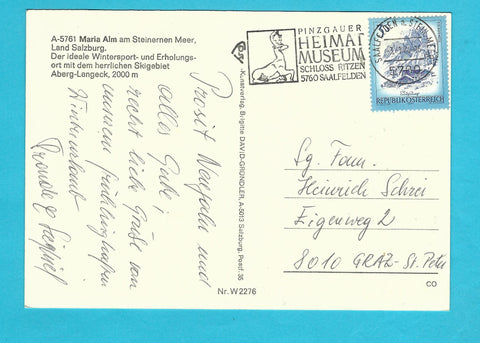 A-5761 Maria Alm am Steinernen Meer,
Land Salzburg.
Der ideale Wintersport- und Erholungs-
ort mit dem herrlichen Skigebiet
Aberg-Langeck, 2000 m
Prosit Neujahr und
alles Gute,
recht liebe Grüße vom
unserem frühlinghaften
Winterurlaub
Kunstverlag Brigitte DAVID-GRÜNDLER, A-5013 Salzburg, Postf. 35
Nr. W 2276
PINZGAUER
HEIMAT
MUSEUM
SCHLOSS RITZEN
5760 SAALFELDEN
REPUBLIK ÖSTERREICH
Fam.
Heinrich
Eigenweg 2
8010 GRAZ-St. Peter
CO